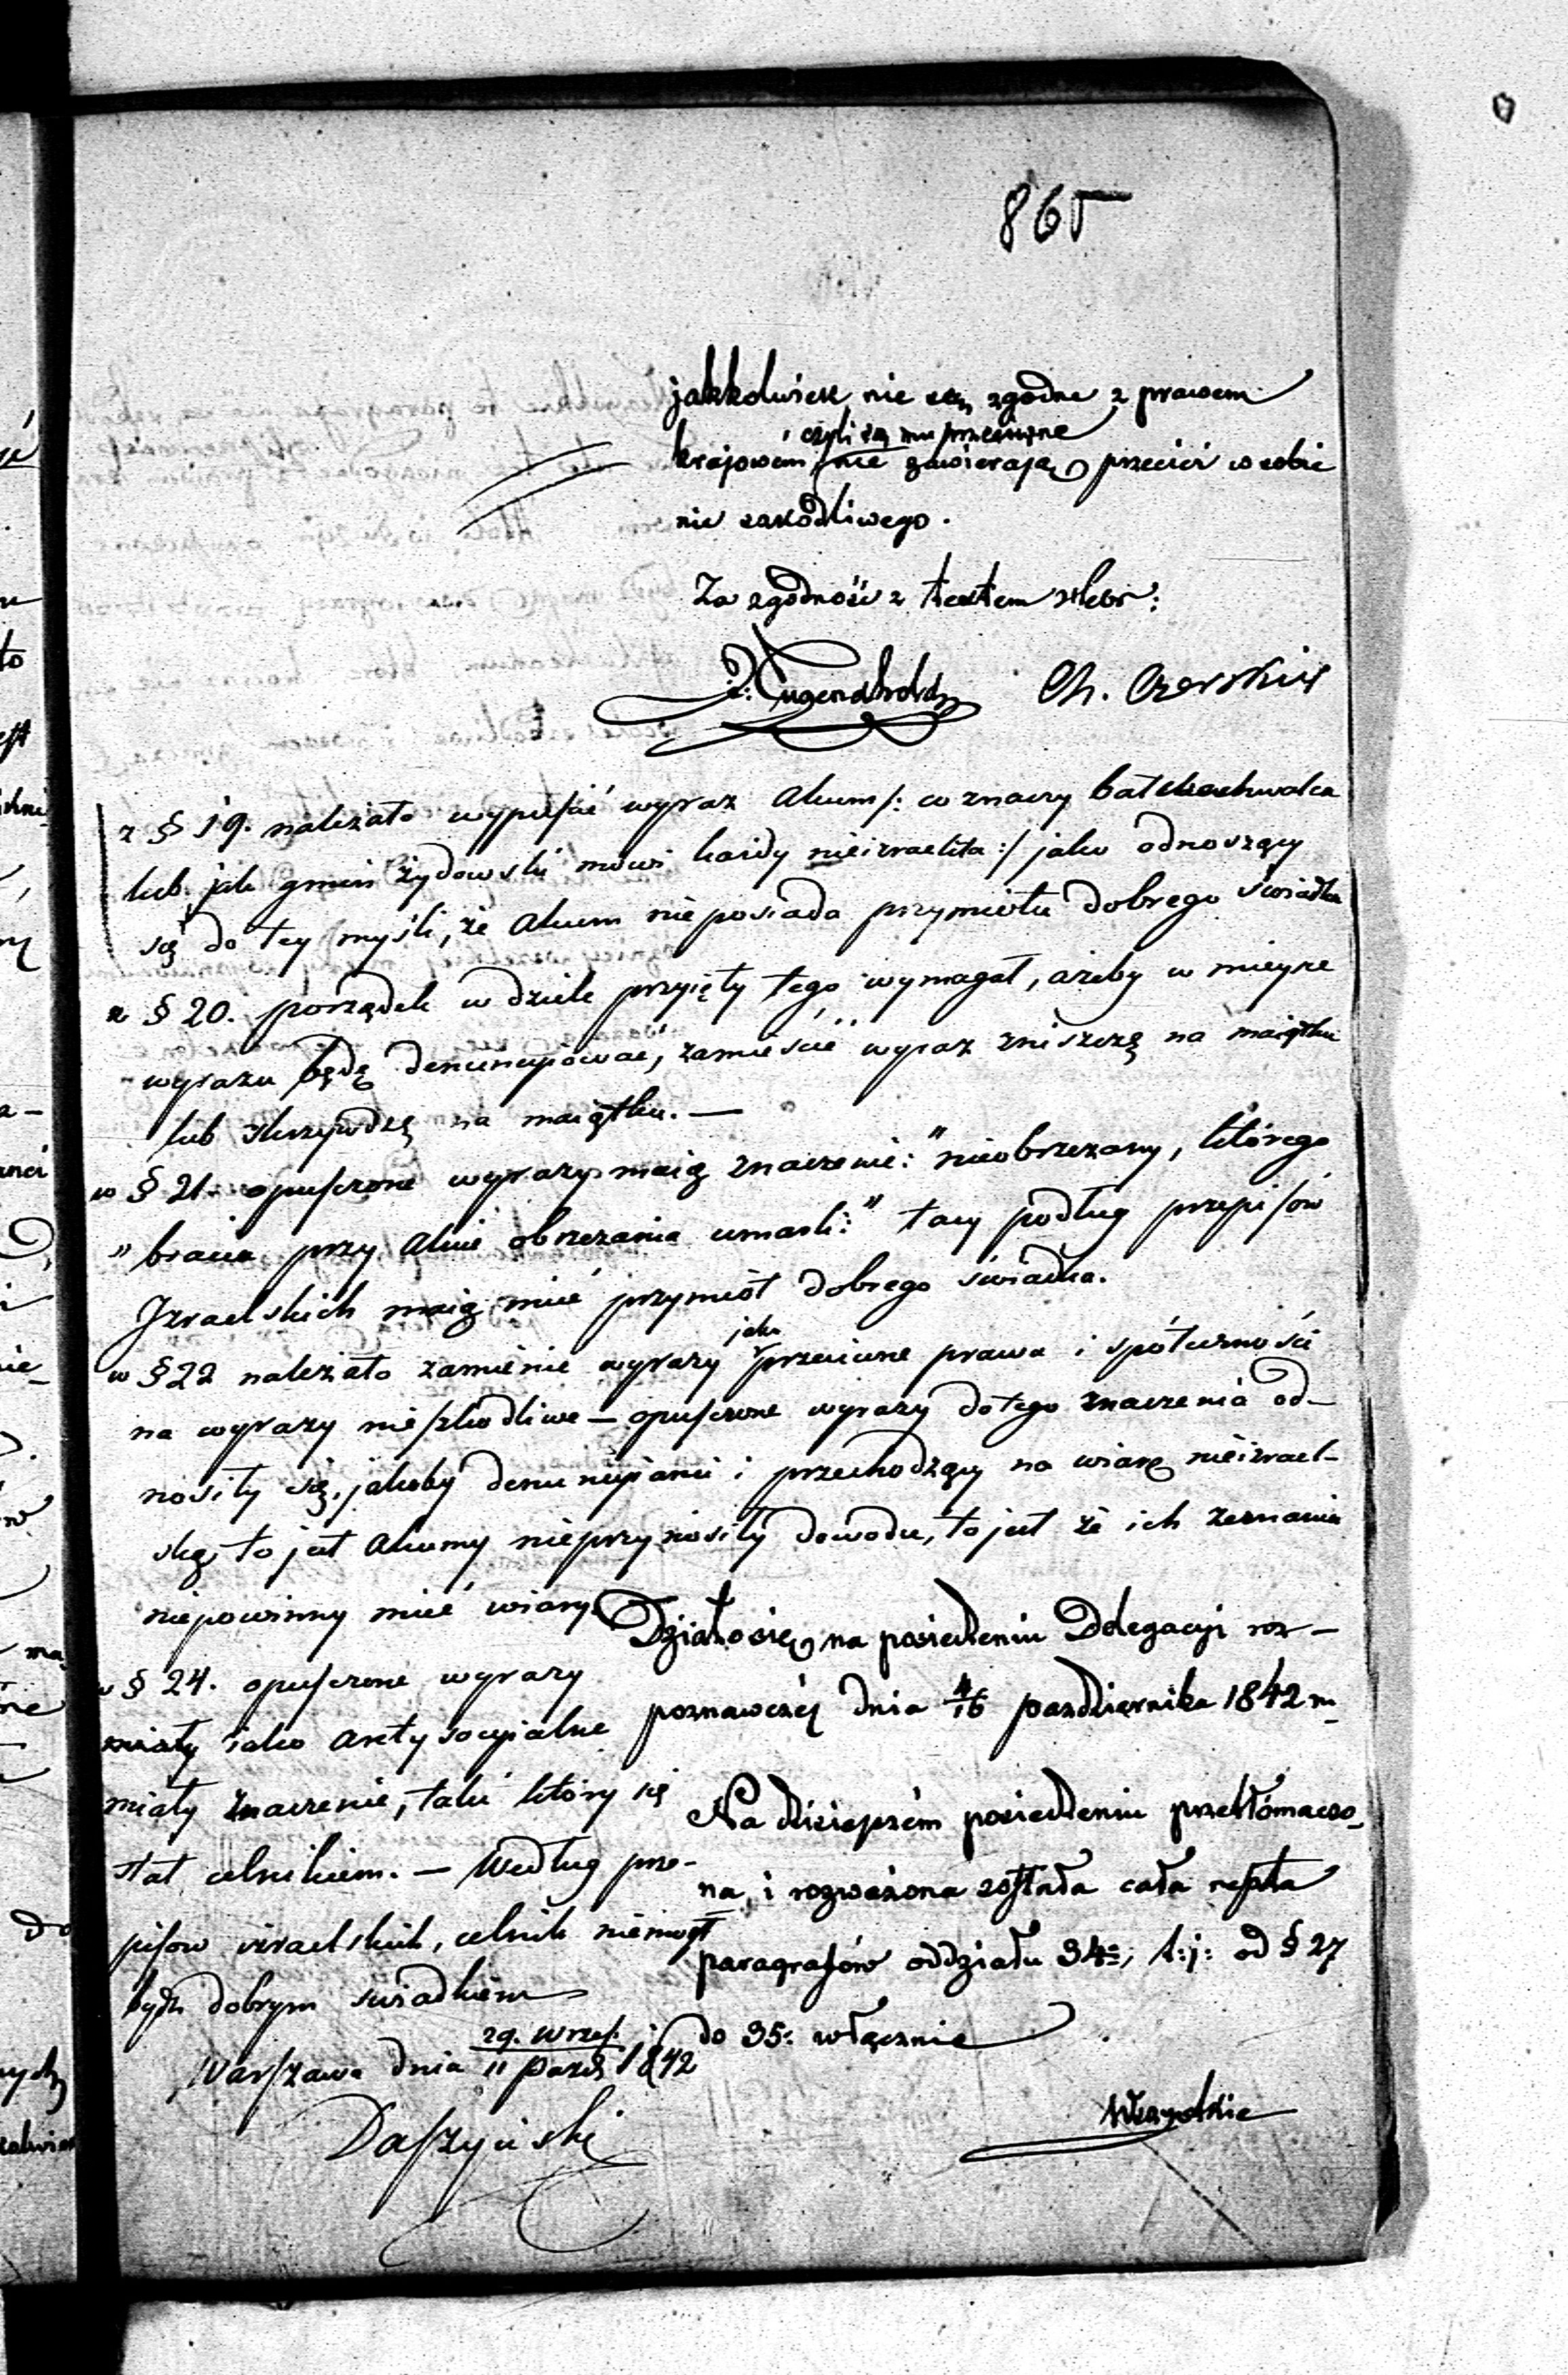 865
jakkolwiek nie są zgodne z prawem
czyli są mu przeciwne
krajowem, nie zawierają przecież w sobie
nic szkodliwego.
Za zgodność z textem Hebr:
J: Tugendhold Ch. Czerskier
z § 19. należało wypuścić wyraz Akum /: co znaczy bałwochwalca
lub jak gmin żydowski mówi każdy nieizraelita :/ jako odnoszący
się do tey myśli, że Akum nie posiada przymiotu dobrego świadka
z § 20. porządek w dziele przyięty tego wymagał, ażeby w mieysce
wyrazu będę denuncyiować, zamieścić wyraz zniszczę na maiątku
lub skrzywdzę na maiątku. —
w § 21. opuszczone wyrazy maią znaczenie: "nieobrzezany, którego
" bracia przy akcie obrzezania umarli:" tacy podług przepisów
Izraelskich maią mieć przymiot dobrego świadka.
jako
w § 22 należało zamienić wyrazy przeciwne prawu i spółeczności
na wyrazy nieszkodliwe — opuszczone wyrazy do tego znaczenia od-
nosiły się, jakoby denuncyianci i przechodzący na wiarę nieizrael-
ską, to jest Akumy nieprzynosiły dowodu, to jest że ich zeznania
niepowinny mieć wiary.
w § 24. opuszczone wyrazy
miały jako antysocyialne
miały znaczenie, taki który się
stał celnikiem. — Według prze-
pisow izraelskich, celnik niemógł
bydź dobrym świadkiem
Warszawa dnia 29. Wrześ. / 11 Paźd 1842
Daszyński
Działo się na posiedzeniu Delegacyi roz-
poznawczéj dnia 4/16 Października 1842 r.
Na dzisiejszém posiedzeniu przetłómaczo-
na, i rozważona została cała reszta
paragrafów oddziału 34:, t:j: od § 27
do 35: włącznie
Wszystkie